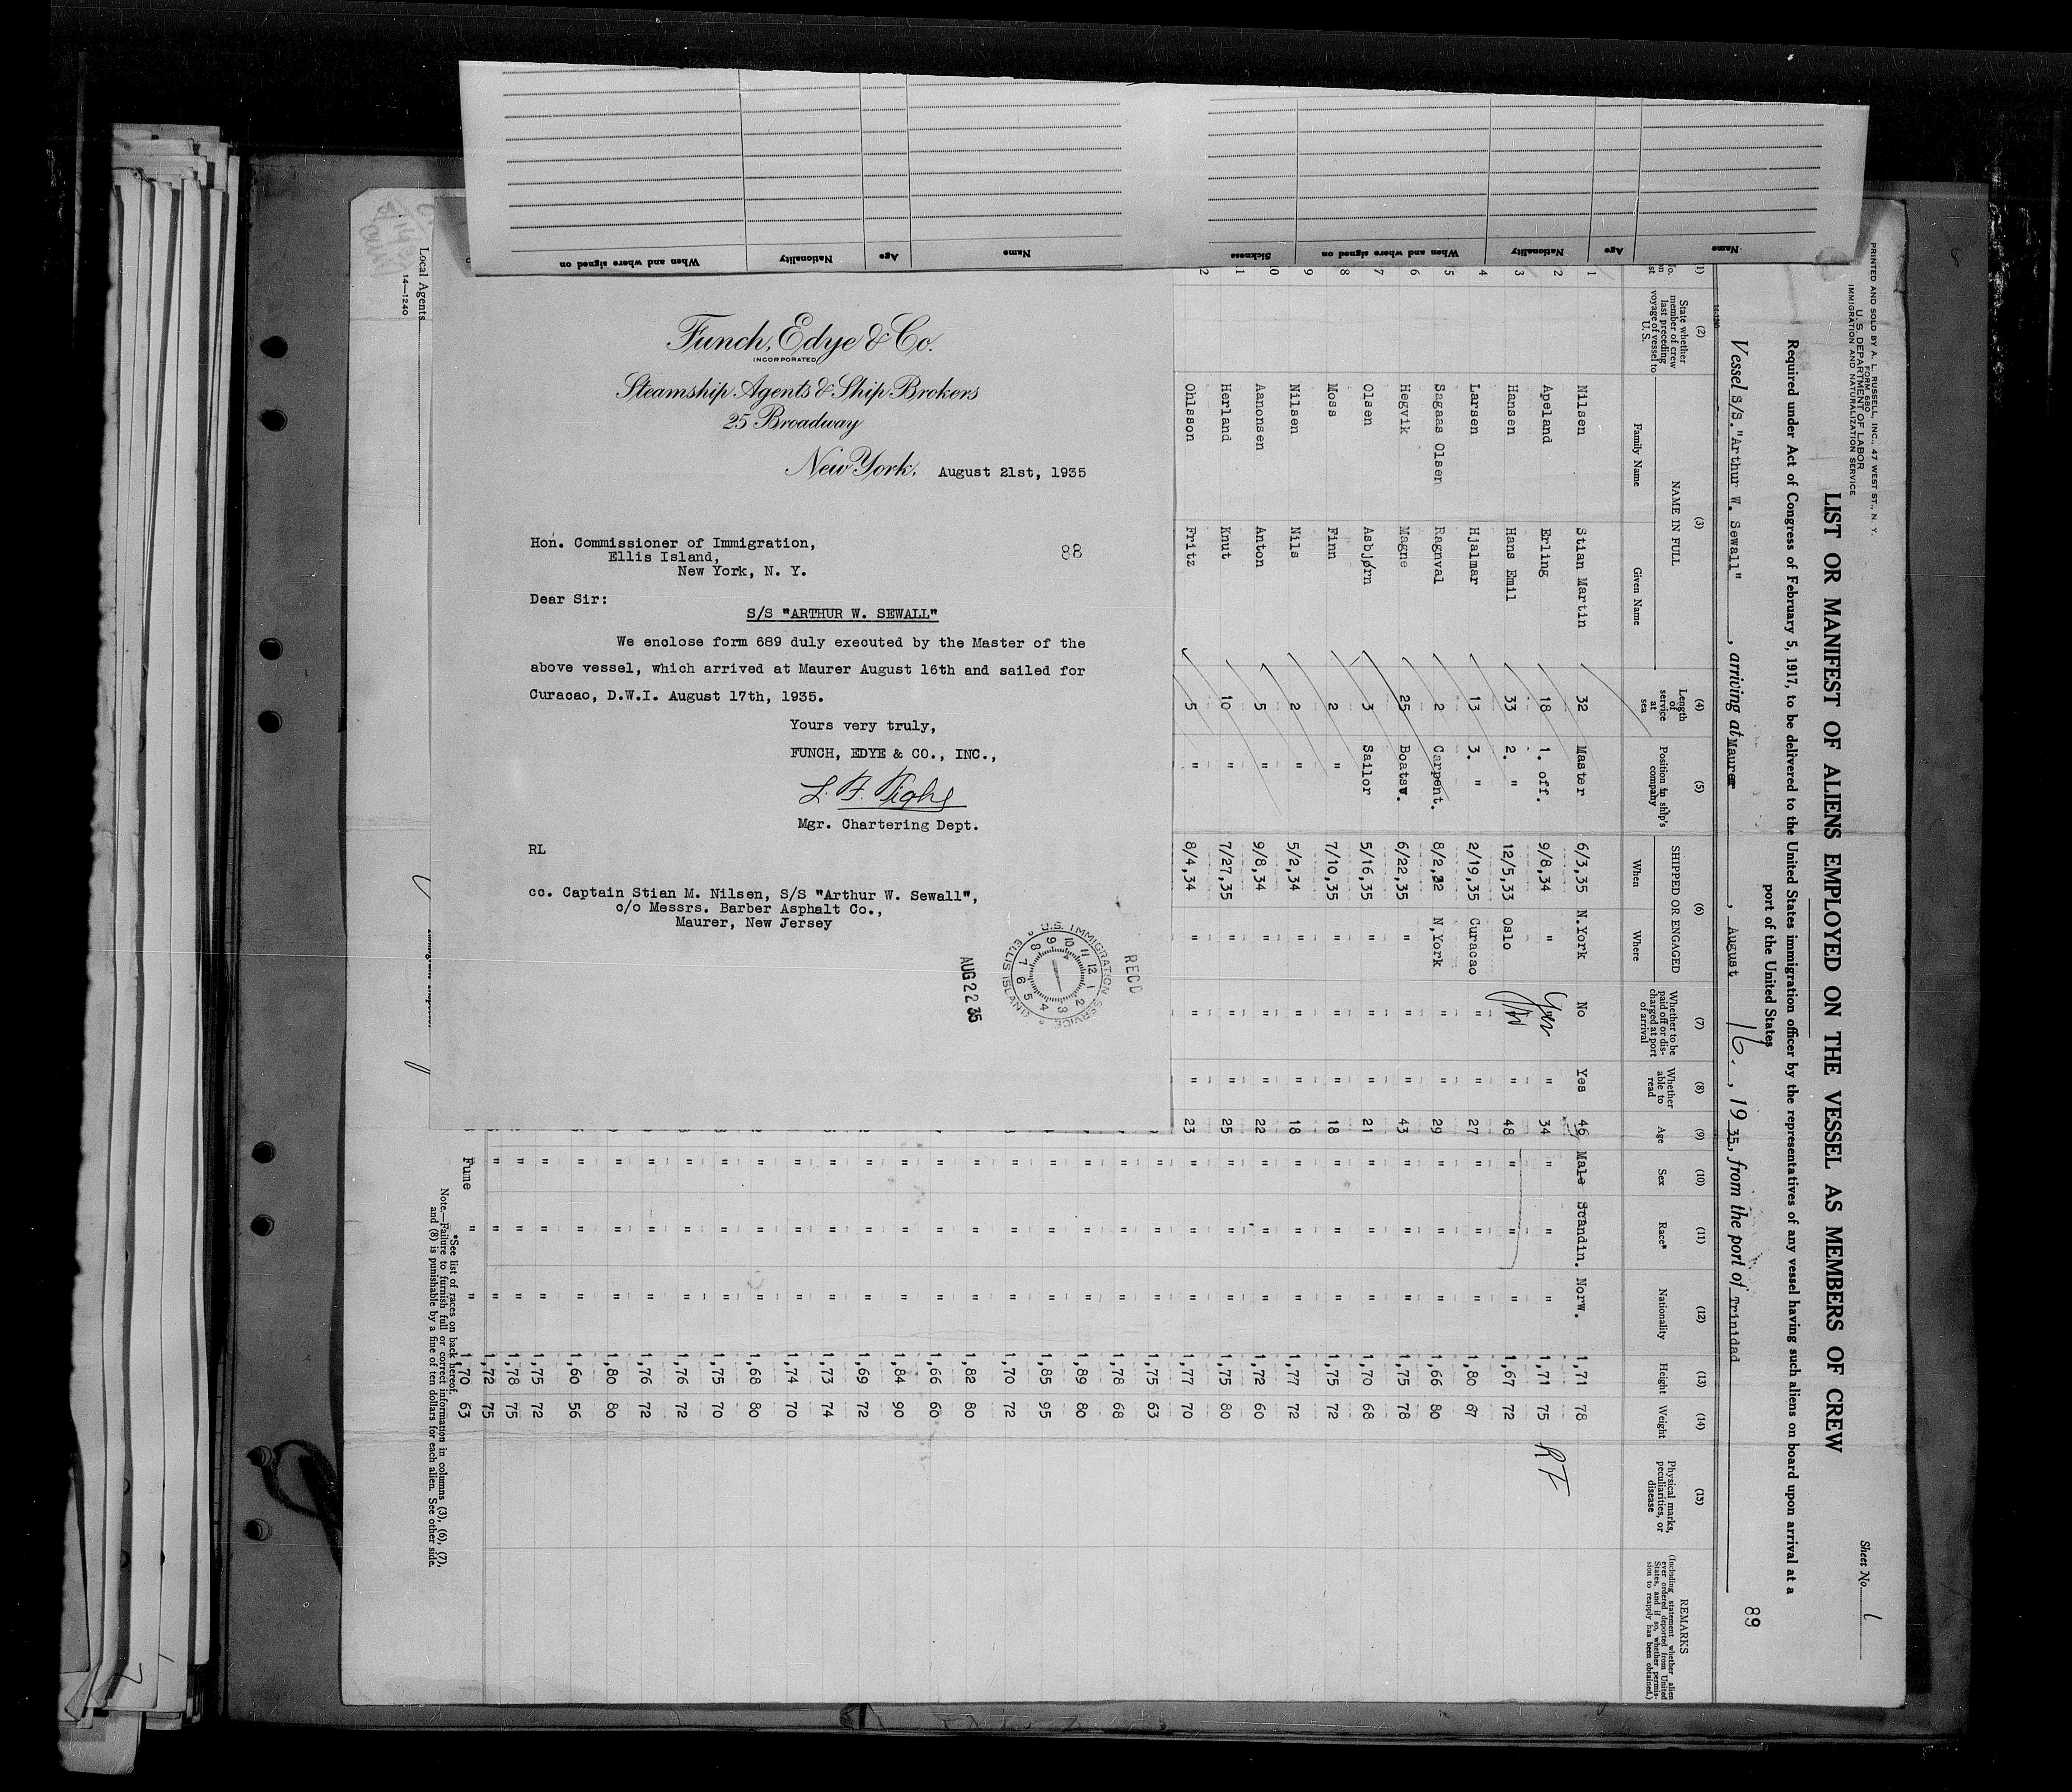 Name
Age
Nationality
When and where signed on
Sickness
When and where signed on
Nationality
Age
Name
Funch, Edye & Co.
INCORPORATED
Steamship Agents & Ship Brokers
25 Broadway
New York, August 21st, 1935
88
Hon. Commissioner of Immigration,
Ellis Island,
New York, N. Y.
Dear Sir:
S/S "ARTHUR W. SEWALL"
We enclose form 689 duly executed by the Master of the
above vessel, which arrived at Maurer August 16th and sailed for
Curacao, D.W.I. August 17th, 1935.
Yours very truly,
FUNCH, EDYE & CO., INC.,
Mgr. Chartering Dept.
RL
cc. Captain Stian M. Nilsen, S/S "Arthur W. Sewall",
c/o Messrs. Barber Asphalt Co.,
Maurer, New Jersey
RECD
U.S. IMMIGRATION SERVICE
ELLIS ISLAND
12 1 2 3 4 5 6 7 8 9 10 11
AUG 22 35
PRINTED AND SOLD BY A. L. RUSSELL, INC., 47 WEST ST., N. Y.
FORM 680
U. S. DEPARTMENT OF LABOR
IMMIGRATION AND NATURALIZATION SERVICE
Sheet No. 1
LIST OR MANIFEST OF ALIENS EMPLOYED ON THE VESSEL AS MEMBERS OF CREW
Required under Act of Congress of February 5, 1917, to be delivered to the United States immigration officer by the representatives of any vessel having such aliens on board upon arrival at a
port of the United States
89
Vessel S/S. "Arthur W. Sewall", arriving at Maurer, August 16., 1935, from the port of Trinidad
(2) State whether member of crew last preceding voyage of vessel to U. S.
(3) NAME IN FULL
Family Name Given Name
(4) Length of service at sea
(5) Position in ship's company
(6) SHIPPED OR ENGAGED
When Where
(7) Whether to be paid off or discharged at port of arrival
(8) Whether able to read
(9) Age
(10) Sex
(11) Race*
(12) Nationality
(13) Height
(14) Weight
(15) Physical marks, peculiarities, or disease
REMARKS
(Including statement whether alien ever ordered deported from United States, and if so, whether permission to reapply has been obtained.)
1 Nilsen Stian Martin 32 Master 6/3,35 N.York No Yes 46 Male Scandin. Norw. 1,71 78
2 Apeland Erling 18 1. off. 9/8,34 " " 34 " " " 1,71 75 RF
3 Hansen Hans Emil 33 2. " 12/5,33 Oslo " 48 " " " 1,67 72
4 Larsen Hjalmar 13 3. " 2/19,35 Curacao " " 27 " " " 1,80 67
5 Sagaas Olsen Ragnval 2 Carpent. 8/2,32 N,York " " 29 " " " 1,66 80
6 Hegvik Magne 25 Boatsw. 6/22,35 " " " 43 " " " 1,75 78
7 Olsen Asbjørn 3 Sailor 5/16,35 " " " 21 " " " 1,70 68
8 Moss Finn 2 " 7/10,35 " " " 18 " " " 1,75 72
9 Nilsen Nils 2 " 5/2,34 " " " 18 " " " 1,77 72
10 Aanonsen Anton 5 " 9/8,34 " " " 22 " " " 1,72 60
11 Herland Knut 10 " 7/27,35 " " " 25 " " " 1,75 80
12 Ohlsson Fritz 5 " 8/4,34 " " " 23 " " " 1,77 70
" " " 1,75 63
" " " 1,78 68
" " " 1,89 80
" " " 1,85 95
" " " 1,70 72
" " " 1,82 80
" " " 1,66 60
" " " 1,84 90
" " " 1,69 72
" " " 1,73 74
" " " 1,74 70
" " " 1,68 80
" " " 1,75 70
" " " 1,76 72
" " " 1,76 72
" " " 1,80 80
" " " 1,60 56
" " " 1,75 72
" " " 1,78 75
" " " 1,72 75
Fume " " 1,70 63
*See list of races on back hereof.
Note.—Failure to furnish full or correct information in columns (3), (6), (7),
and (8) is punishable by a fine of ten dollars for each alien. See other side.
Local Agents
14—1240